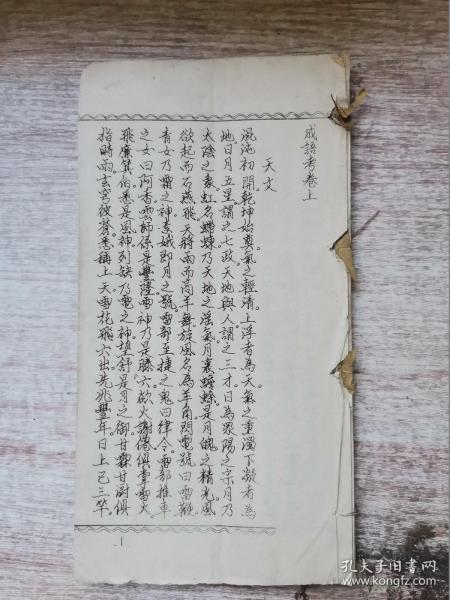 成語考卷上
天文
混沌初開乾坤始奠氣之輕清上浮者為天氣之重濁下凝者為
地日月五星謂之七政天地與人謂之三才日為眾陽之宗月乃
太陰之象虹名螮蝀乃天地之淫氣月裏蟾蜍是月魄之精光風
欲起而石燕飛天將雨而商羊舞旋風名為羊角閃電號曰雷鞭
青女乃霜之神素娥即月之號雷部至捷之鬼曰律令雷部推車
之女曰阿香雲師係是豐隆雪神乃是滕六欻火謝僊俱掌雷火
飛廉箕伯悉是風神列缺乃電之神望舒是月之御甘霖甘澍俱
指時雨玄穹彼蒼悉稱上天雪花飛六出先兆豐年日上已三竿
1
孔夫子旧书网
www.kongfz.com